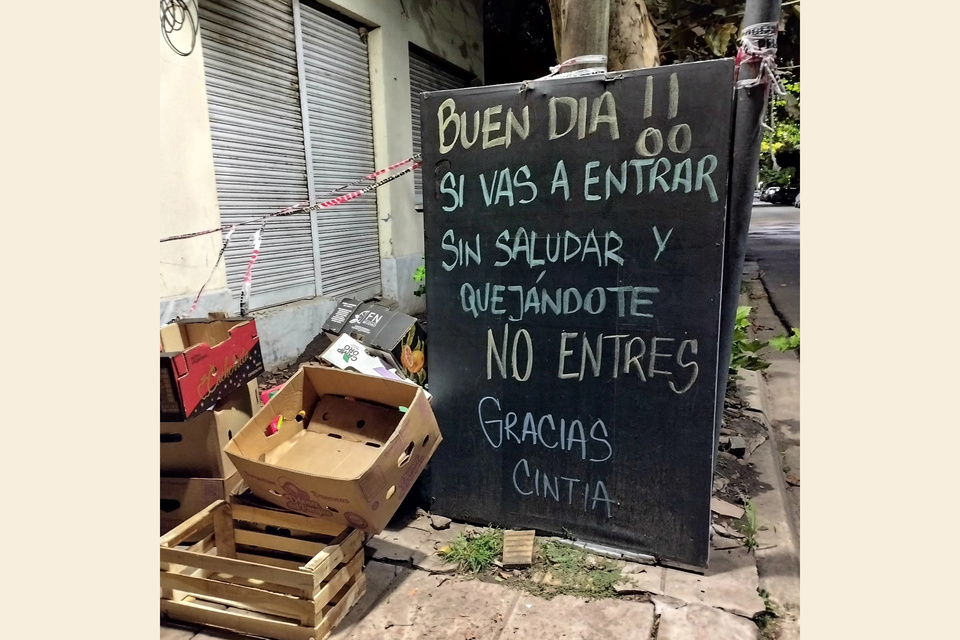 BUEN DIA !!
SI VAS A ENTRAR
SIN SALUDAR Y
QUEJÁNDOTE
NO ENTRES
GRACIAS
CINTIA